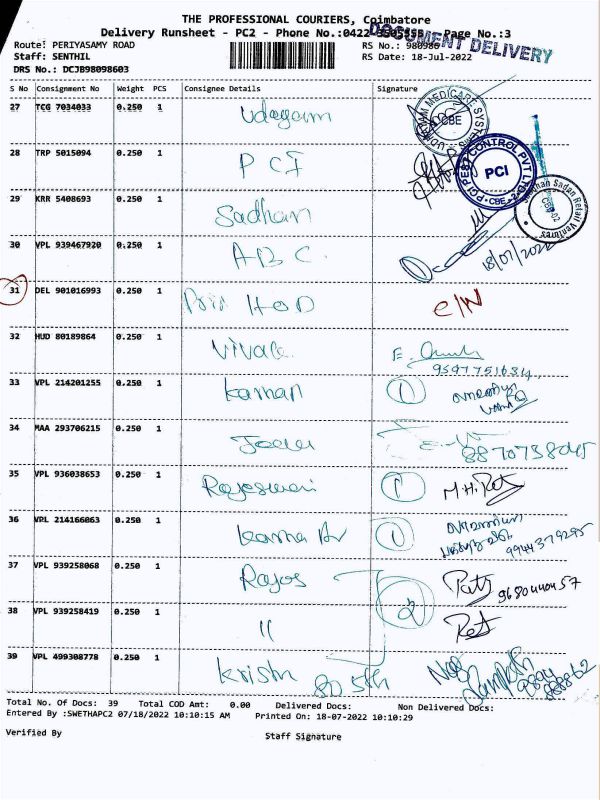 THE PROFESSIONAL COURIERS, Coimbatore
Delivery Runsheet - PC2 - Phone No.:0422 3505555 Page No.:3
DOCUMENT DELIVERY
Route: PERIYASAMY ROAD RS No.: 980986
Staff: SENTHIL RS Date: 18-Jul-2022
DRS No.: DCJB98098603
S No Consignment No Weight PCS Consignee Details Signature
27 TCG 7034033 0.250 1 Udayam
UDAYAM MEDICARE SYSTEMS CBE
28 TRP 5015094 0.250 1 PCI
PCI PEST CONTROL PVT LTD PCI CBE
29 KRR 5408693 0.250 1 Sadhan
Sadhan Sadan Retail Ventures
30 VPL 939467920 0.250 1 ABC
18/07/2022
31 DEL 901016993 0.250 1 HOD
32 HUD 80189864 0.250 1 Vivale
33 VPL 214201255 0.250 1 Kannan 1
34 MAA 293706215 0.250 1
8870738045
35 VPL 936038653 0.250 1 Rajeswari 1
36 VPL 214166063 0.250 1 1
9944379295
37 VPL 939258068 0.250 1 Rajos 2
9680440457
38 VPL 939258419 0.250 1 11
39 VPL 499308778 0.250 1 Krish
Total No. Of Docs: 39 Total COD Amt: 0.00 Delivered Docs: Non Delivered Docs:
Entered By :SWETHAPC2 07/18/2022 10:10:15 AM Printed On: 18-07-2022 10:10:29
Verified By Staff Signature